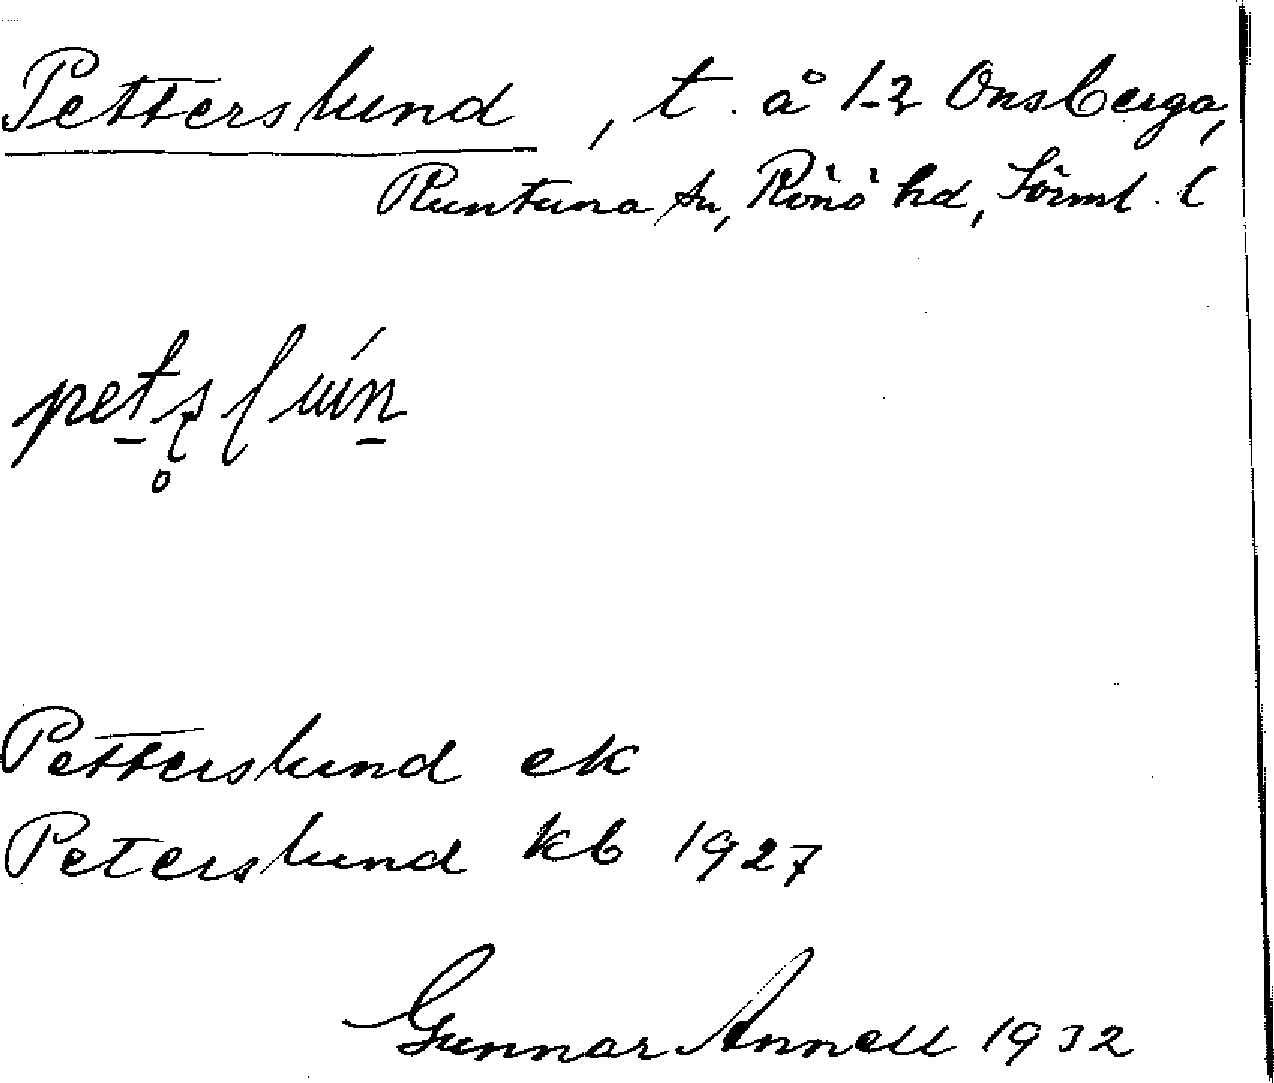 Petterslund, t. å 1-2 Onsberga,
Runtuna sn, Rönö hd, Sörml. l
Petterslund ek
Peterslund kb 1927
Gunnar Annell 1932